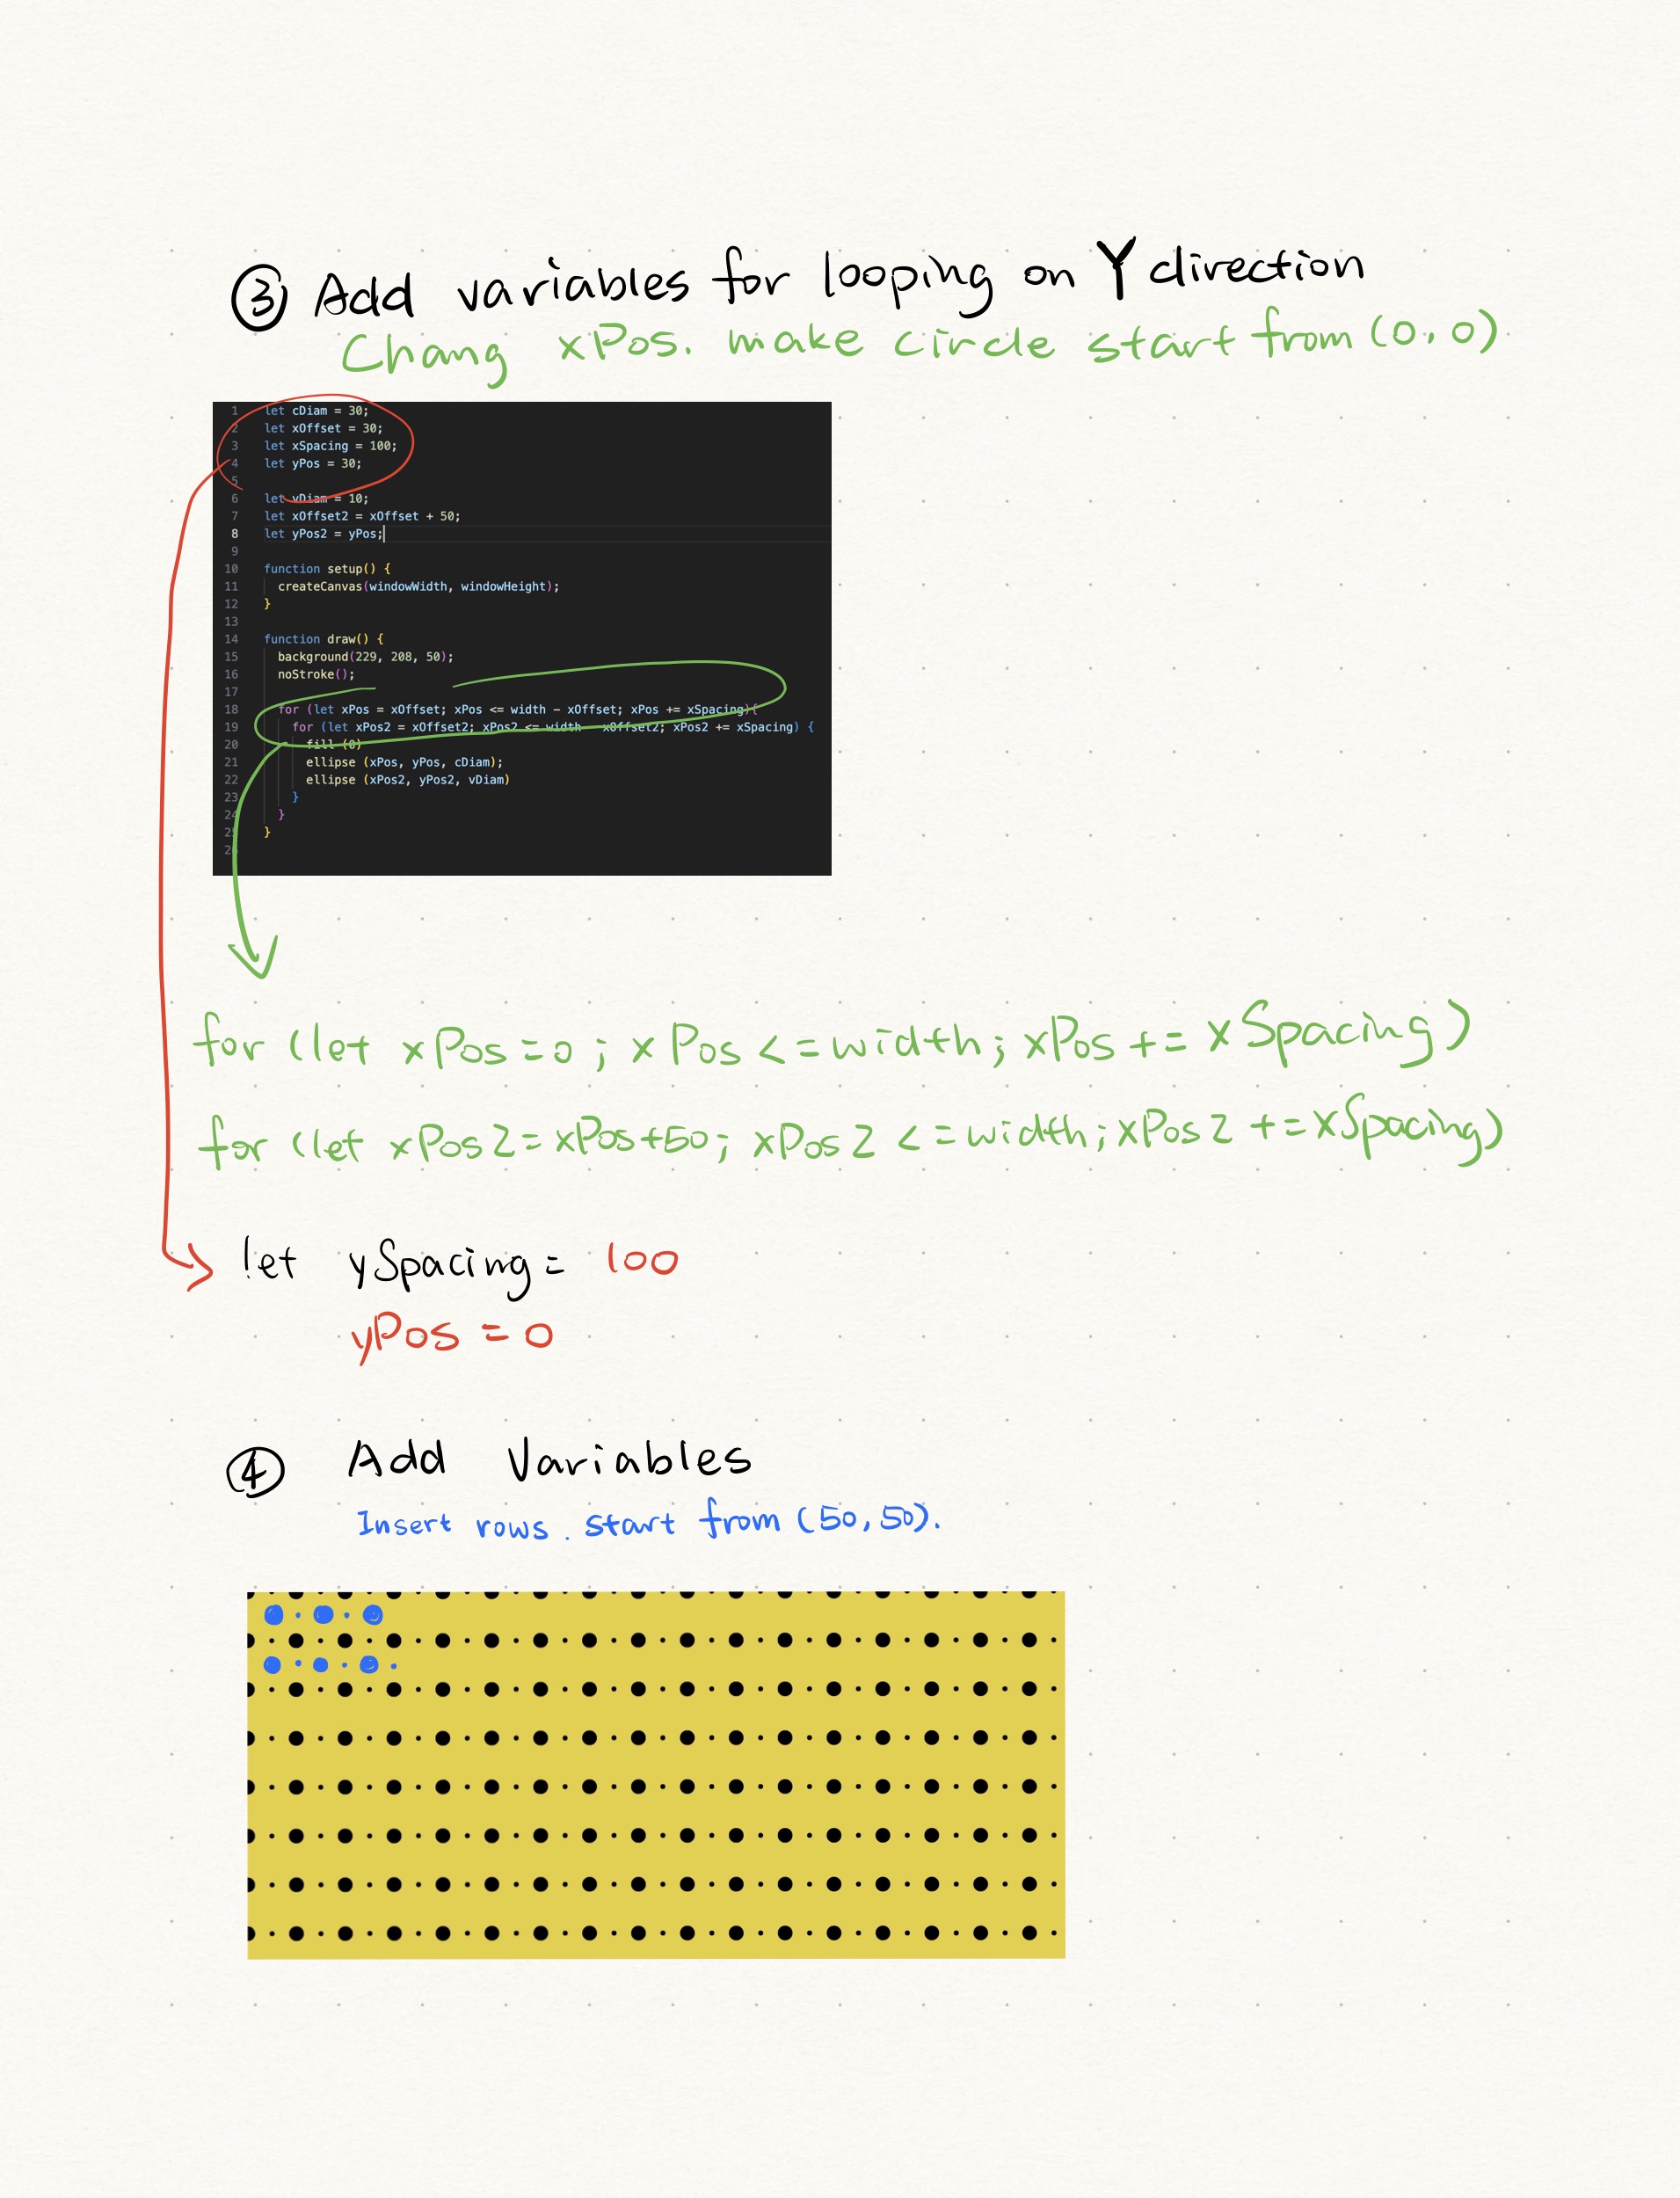 ③ Add variables for looping on Y direction
Chang xPos. make circle start from (0,0)
1 let cDiam = 30;
2 let xOffset = 30;
3 let xSpacing = 100;
4 let yPos = 30;
5
6 let vDiam = 10;
7 let xOffset2 = xOffset + 50;
8 let yPos2 = yPos;
9
10 function setup() {
11 createCanvas(windowWidth, windowHeight);
12 }
13
14 function draw() {
15 background(229, 208, 50);
16 noStroke();
17
18 for (let xPos = xOffset; xPos <= width - xOffset; xPos += xSpacing){
19 for (let xPos2 = xOffset2; xPos2 <= width - xOffset2; xPos2 += xSpacing) {
20 fill (0)
21 ellipse (xPos, yPos, cDiam);
22 ellipse (xPos2, yPos2, vDiam)
23 }
24 }
25 }
26
for (let xPos=0; xPos <=width; xPos += xSpacing)
for (let xPos2=xPos+50; xPos2 <=width; xPos2 +=xSpacing)
let ySpacing= 100
yPos =0
④ Add Variables
Insert rows. start from (50,50).